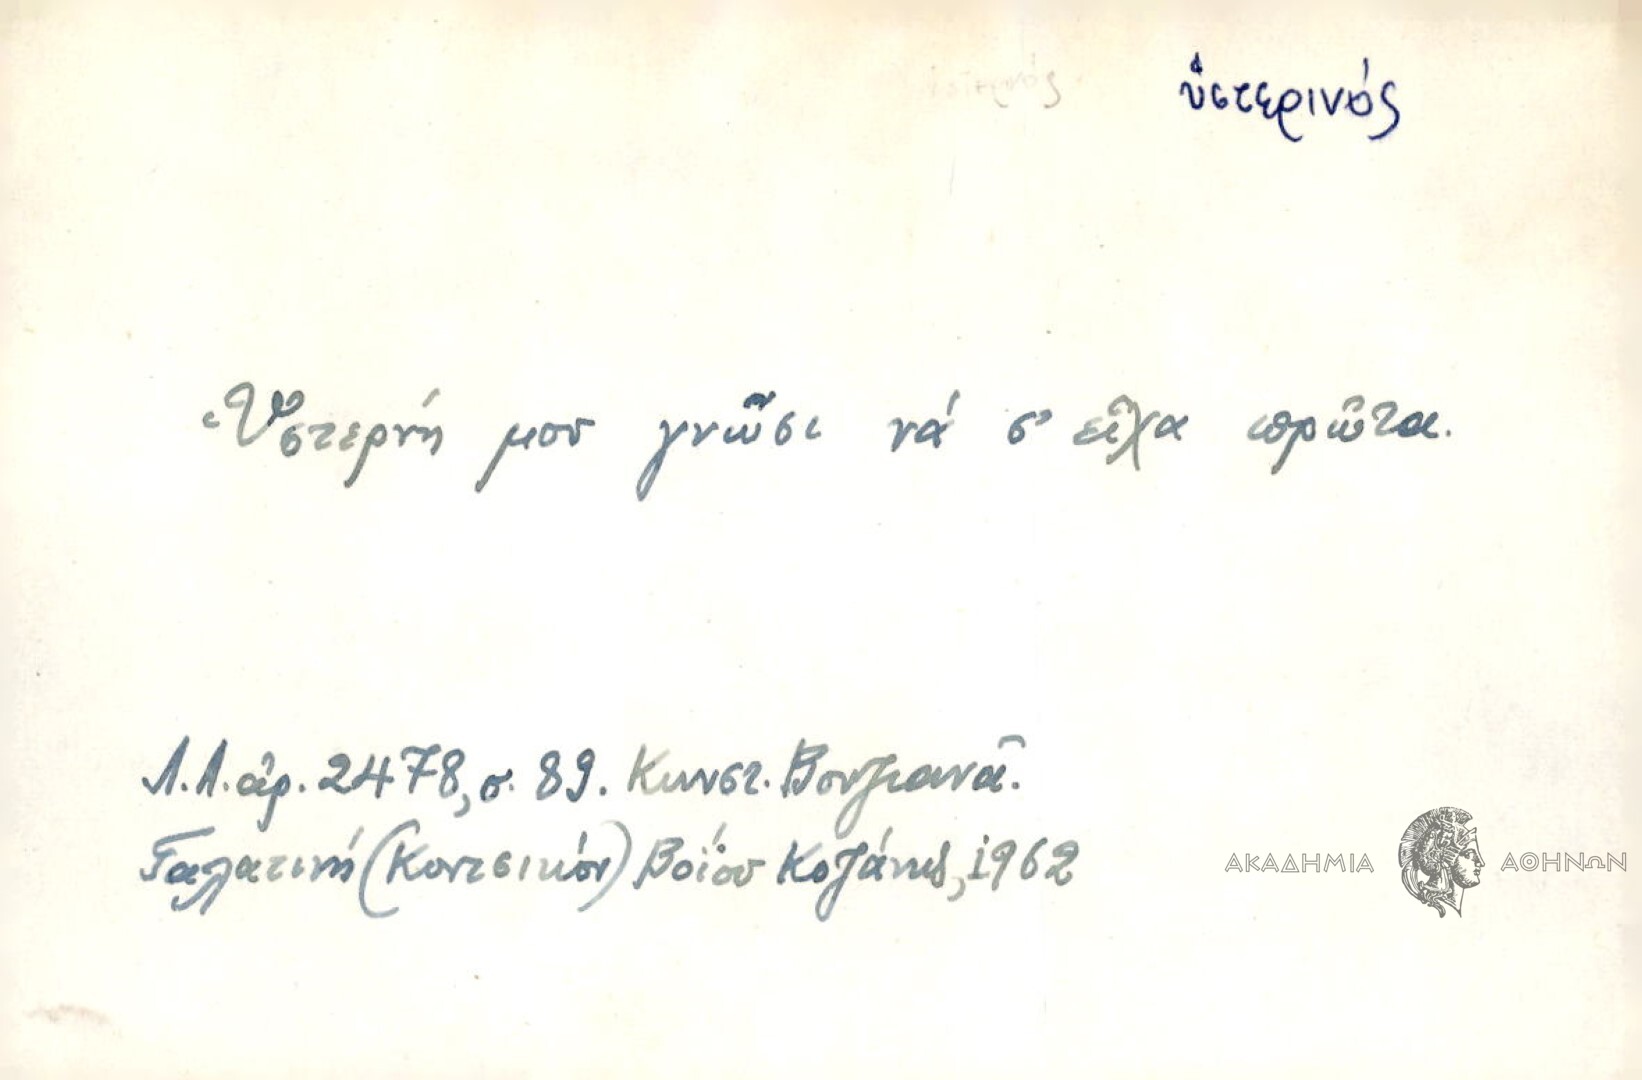 ὑστερινός
Ὑστερνή μου γνῶσι νά σ' εἶχα πρῶτα.
Λ.Α. ἀρ. 2478, σ. 89. Κωνστ. Βουζιανᾶ.
Γαλατινή (Κοντσικόν) Βοΐου Κοζάνης, 1962
ΑΚΑΔΗΜΙΑ ΑΘΗΝΩΝ